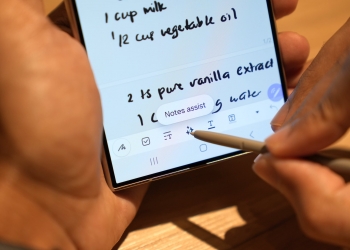 1 cup milk
1/2 cup vegetable oil
2 ts pure vanilla extract
Notes assist
1 c g water